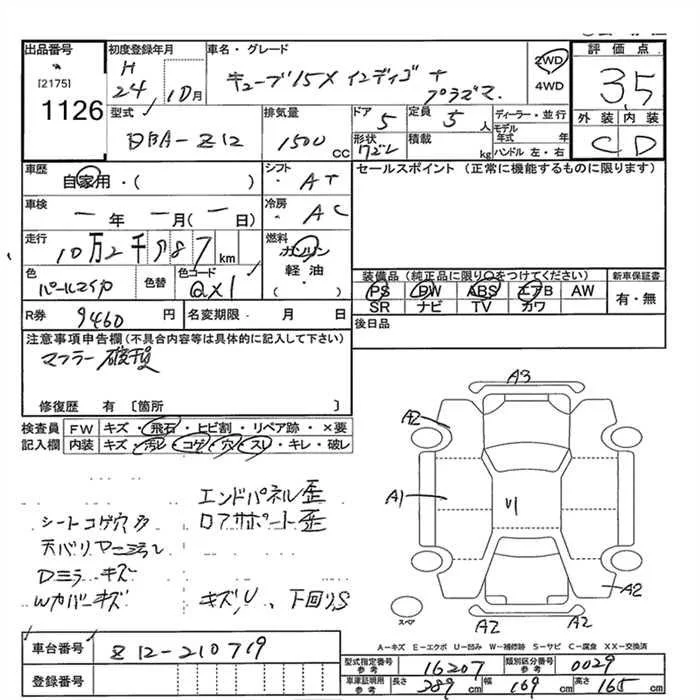 出品番号
[2175]
1126
初度登録年月
H 24年 10月
車名・グレード
キューブ 15X インディゴ+プラズマ.
2WD
4WD
評価点
3,5
外装 内装
C D
型式
DBA-Z12
排気量
1500 CC
ドア
5
定員
5 人
形状
積載
kg
ディーラー・並行
モデル年式 年
ハンドル 左・右
車歴
自家用・( )
シフト
・ AT
セールスポイント (正常に機能するものに限ります)
車検
一年 一月(一日)
冷房
・ AC
走行
10万2千987 km
燃料
ガソリン
軽油・
( )
色
パールマイカ
色替
色コード
QX1
装備品 (純正品に限り○をつけてください)
新車保証書
PS PW ABS エアB AW
有・無
SR ナビ TV カワ
R券
9460 円
名変期限・ 月 日
後日品
注意事項申告欄 (不具合内容等は具体的に記入して下さい)
マフラー破損
修復歴 有 〔箇所 〕
検査員記入欄
FW キズ・飛石・ヒビ割・リペア跡・×要
内装 キズ・汚レ・コゲ・穴・スレ・キレ・破レ
エンドパネル歪
シートコゲ穴多
ロアサポート歪
Dミラ キズ
Wカバーキズ
キズ,U、下回りS
A3
A2
A1
A2
A2
A2
スペア
A-キズ E-エクボ U-凹み W-補修跡 S-サビ C-腐食 XX-交換済
車台番号
Z12-210719
登録番号
型式指定番号 参考
16207
類別区分番号 参考
0029
車庫証明用 参考
長さ 389 cm
幅 169 cm
高さ 165 cm